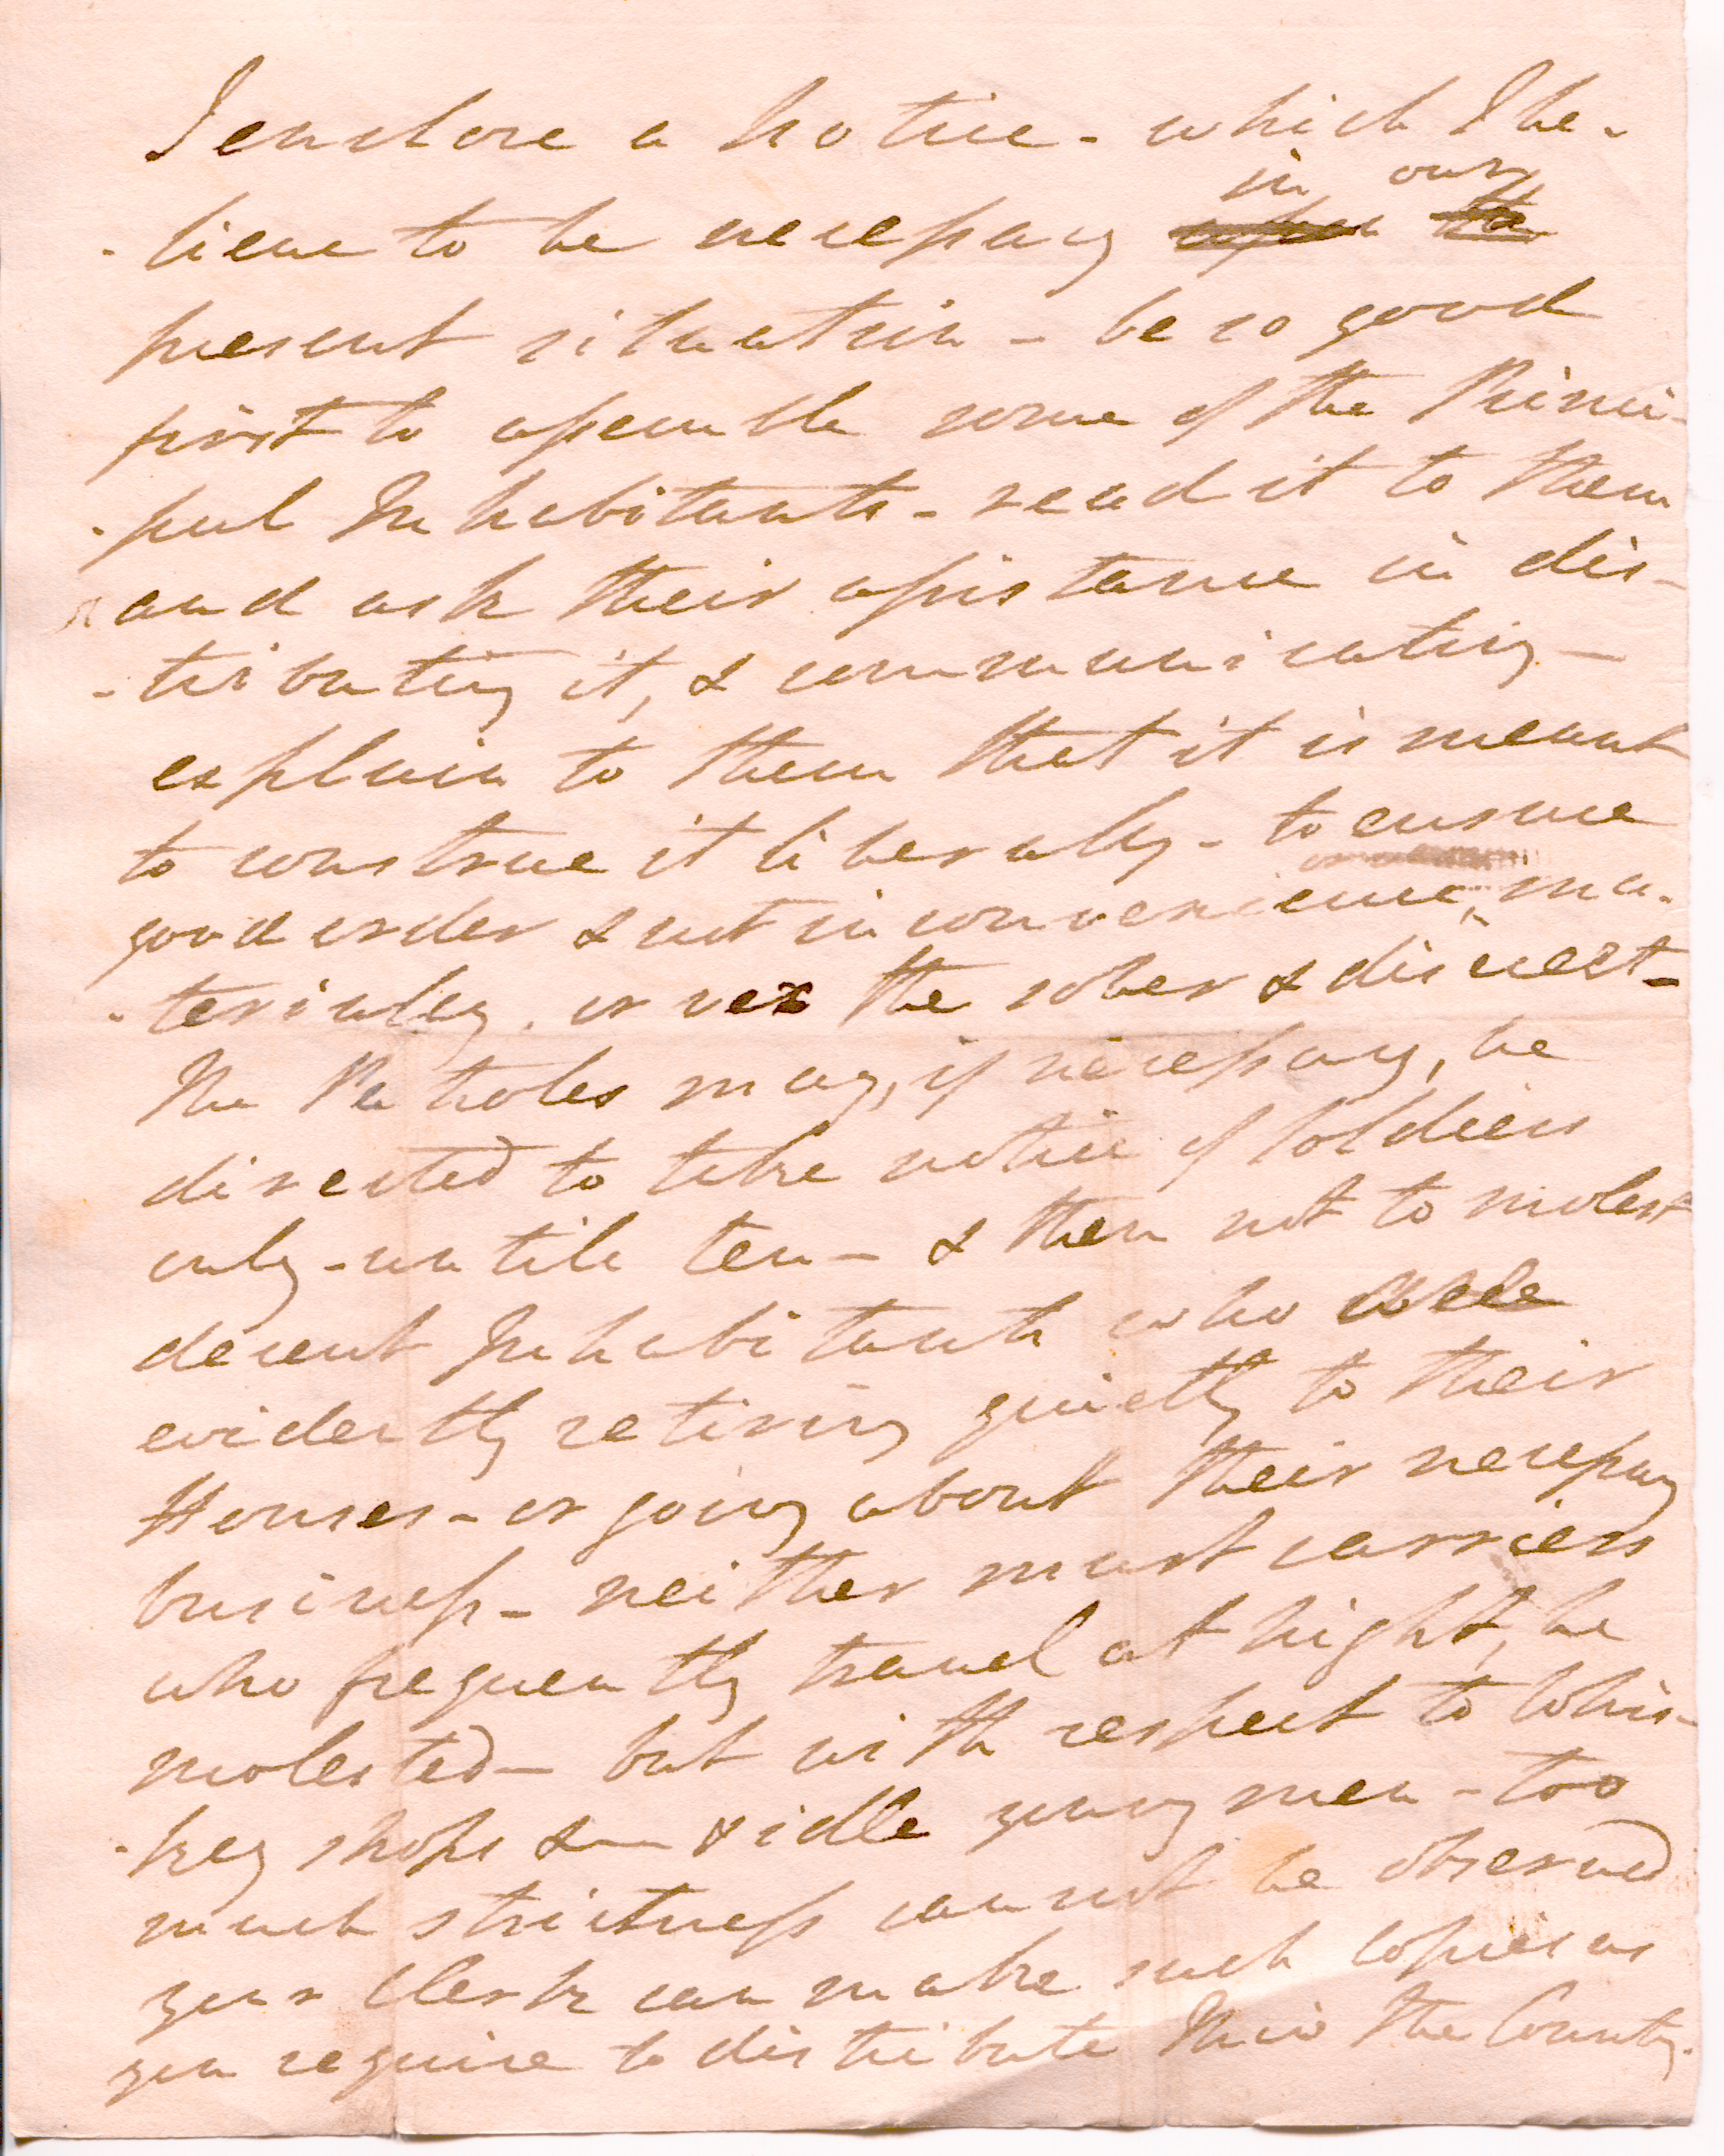 I enclose a Notice - which I be-
in our
-lieve to be necessary upon the
present situation - be so good
first to assemble some of the Princi-
-pal Inhabitants - read it to them
and ask their assistance in dis-
-tributing it, & communicating -
explain to them that it is meant
to construe it liberally - to ensure
good order & not inconvenience, ma-
-terially, or vex the sober & discreet -
The Patroles may, if necessary, be
directed to take notice of Soldiers
only - untill ten - & then not to molest
decent Inhabitants who are
evidently retiring quietly to their
Houses - or going about their necessary
business - neither must carriers
who frequently travel at night, be
molested - but with respect to Whis-
-key shops & - & idle young men - too
much strictness cannot be observed
your Clerk can make such copies as
you require to distribute thro' the County.